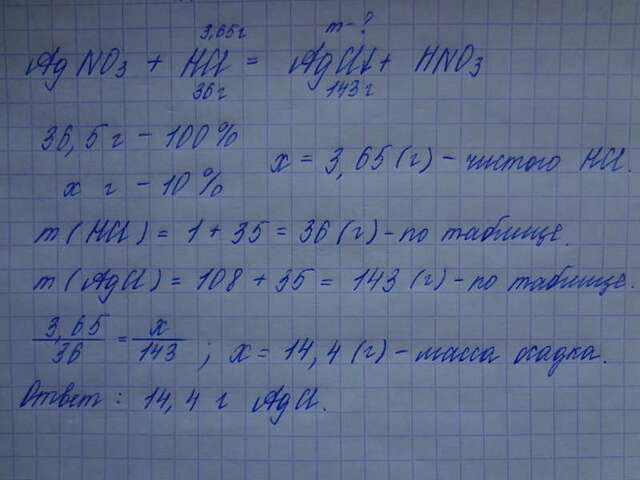 3,65г m-?
AgNO3 + HCl = AgCl↓ + HNO3
36г 143г
36,5 г - 100%
x г - 10%
x = 3,65 (г) - чистого HCl.
m(HCl) = 1 + 35 = 36 (г) - по таблице.
m(AgCl) = 108 + 35 = 143 (г) - по таблице.
3,65/36 = x/143 ; x = 14,4 (г) - масса осадка.
Ответ: 14,4 г AgCl.